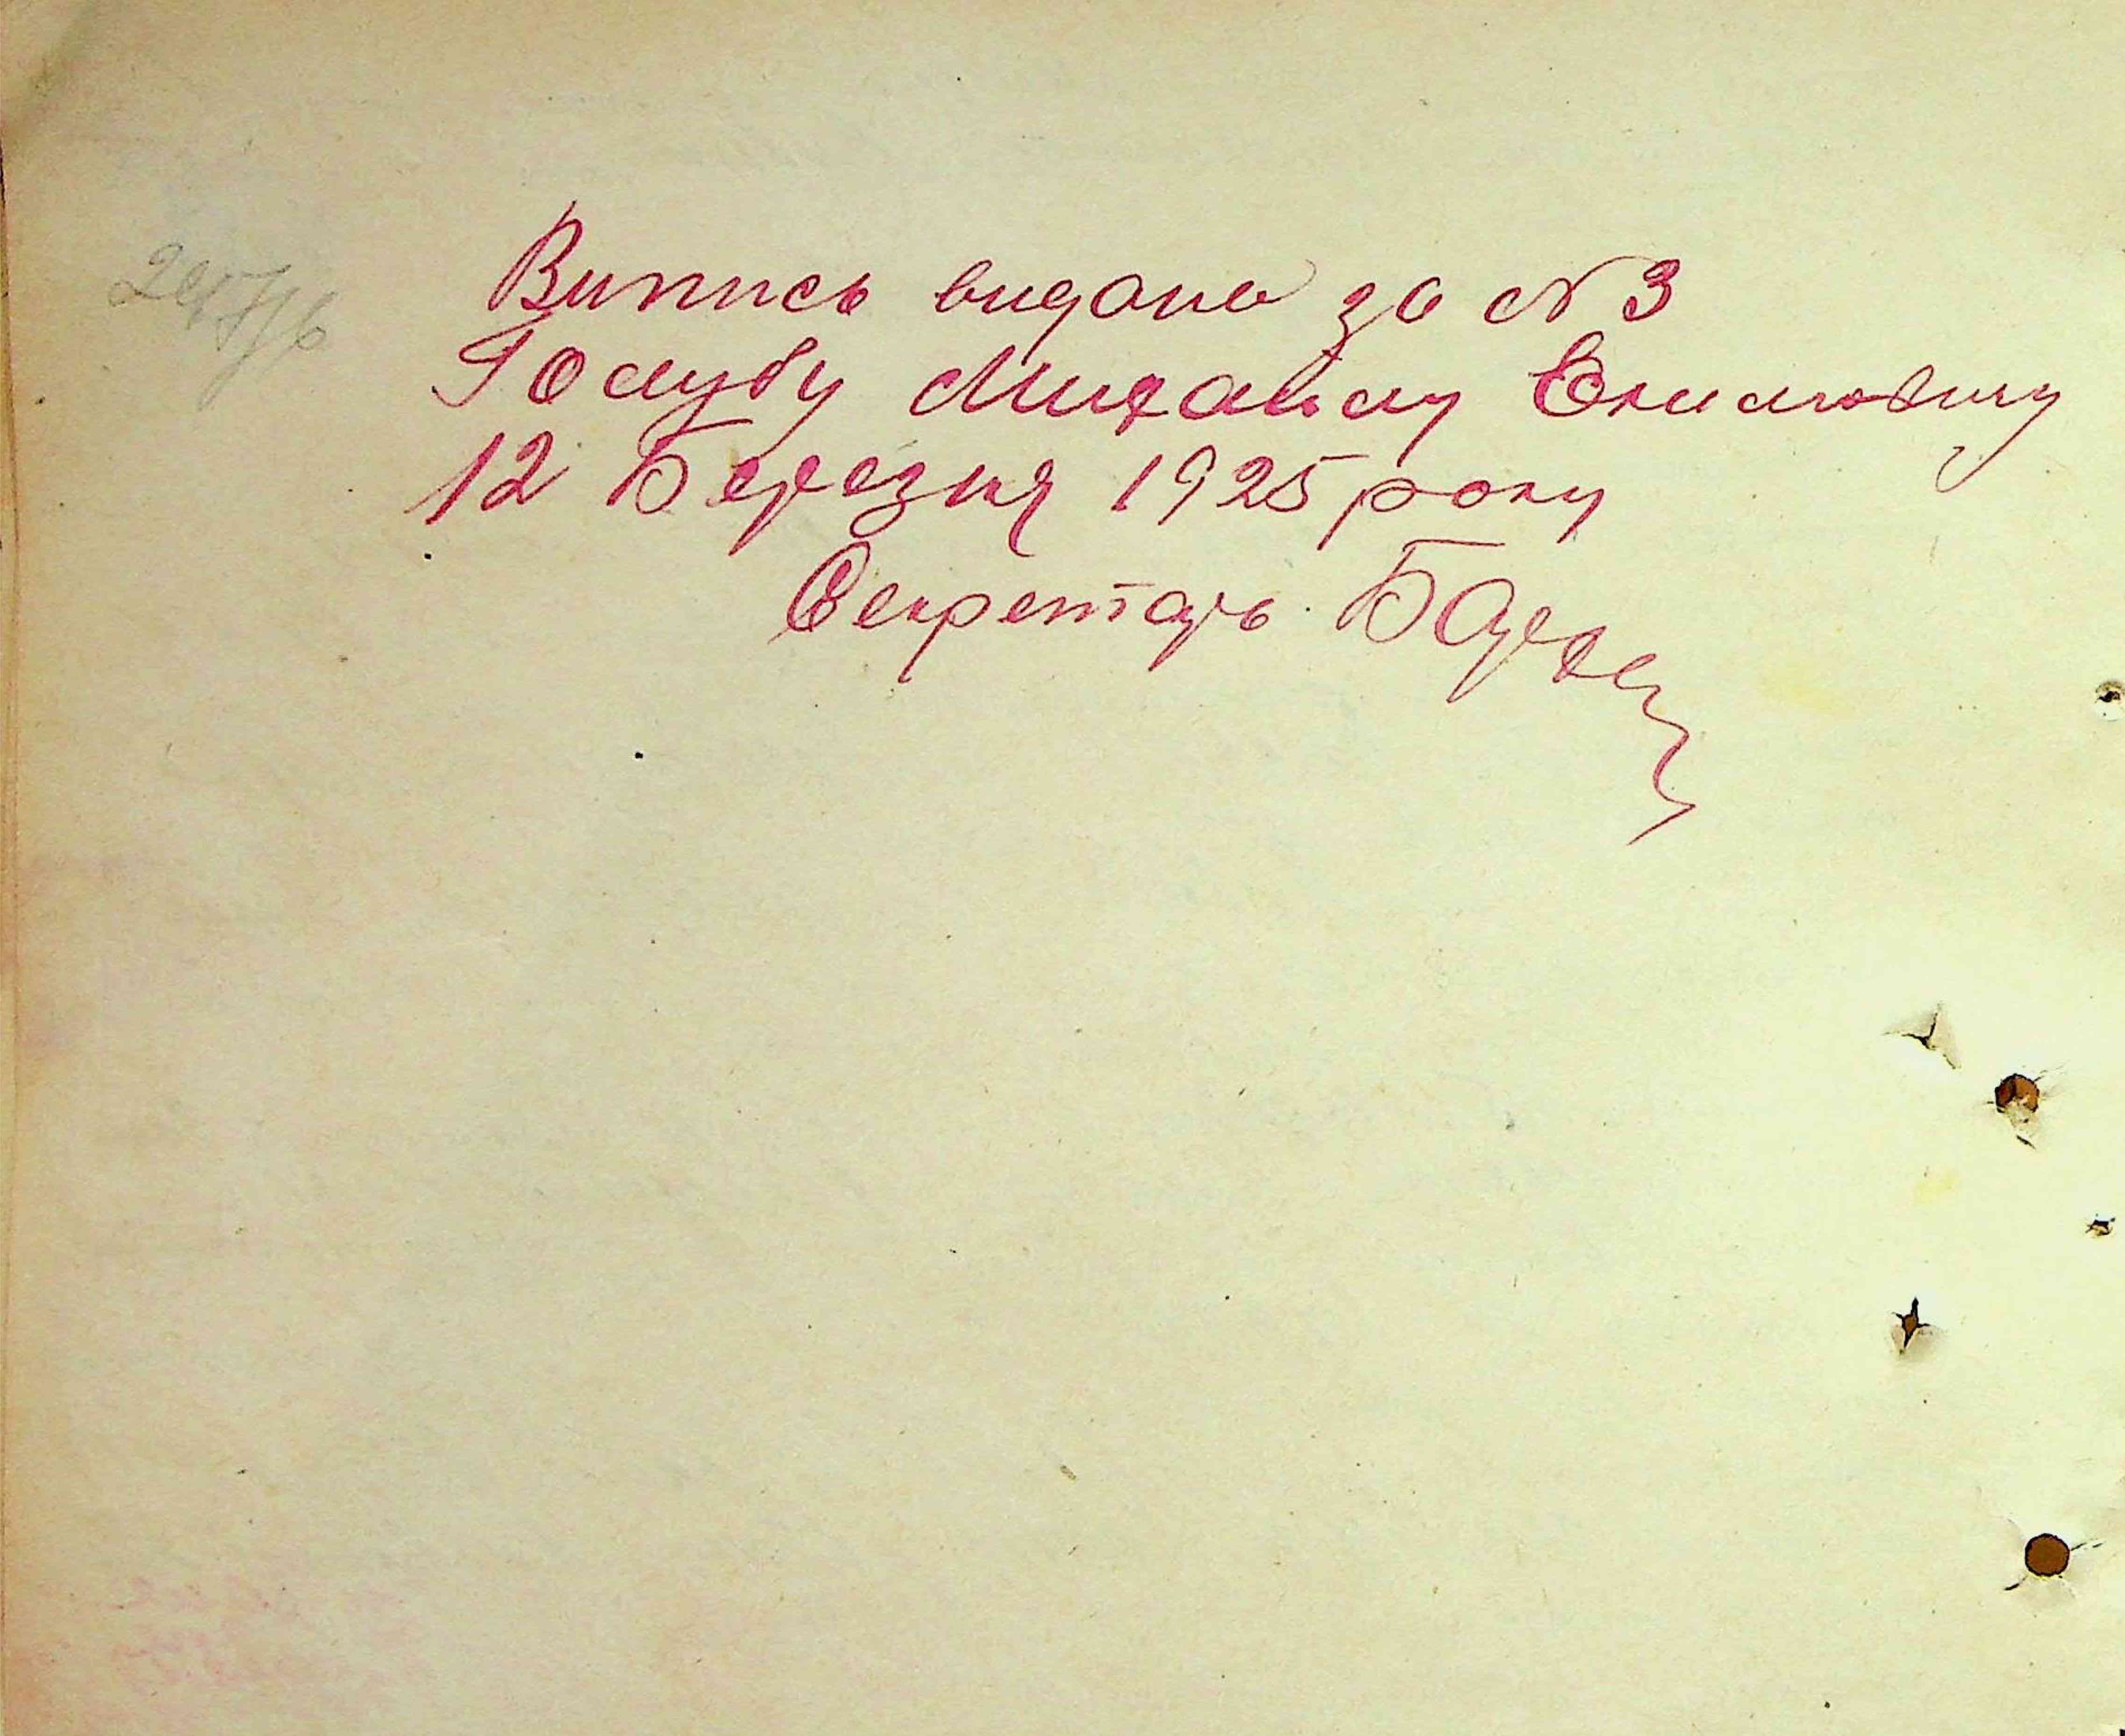 Випись видана за № 3
Голубу Михайлу Екимовичу
12 Березня 1925 року
Секретарь